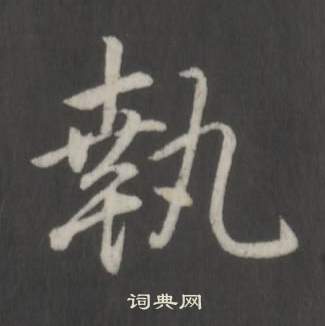 執
词典网